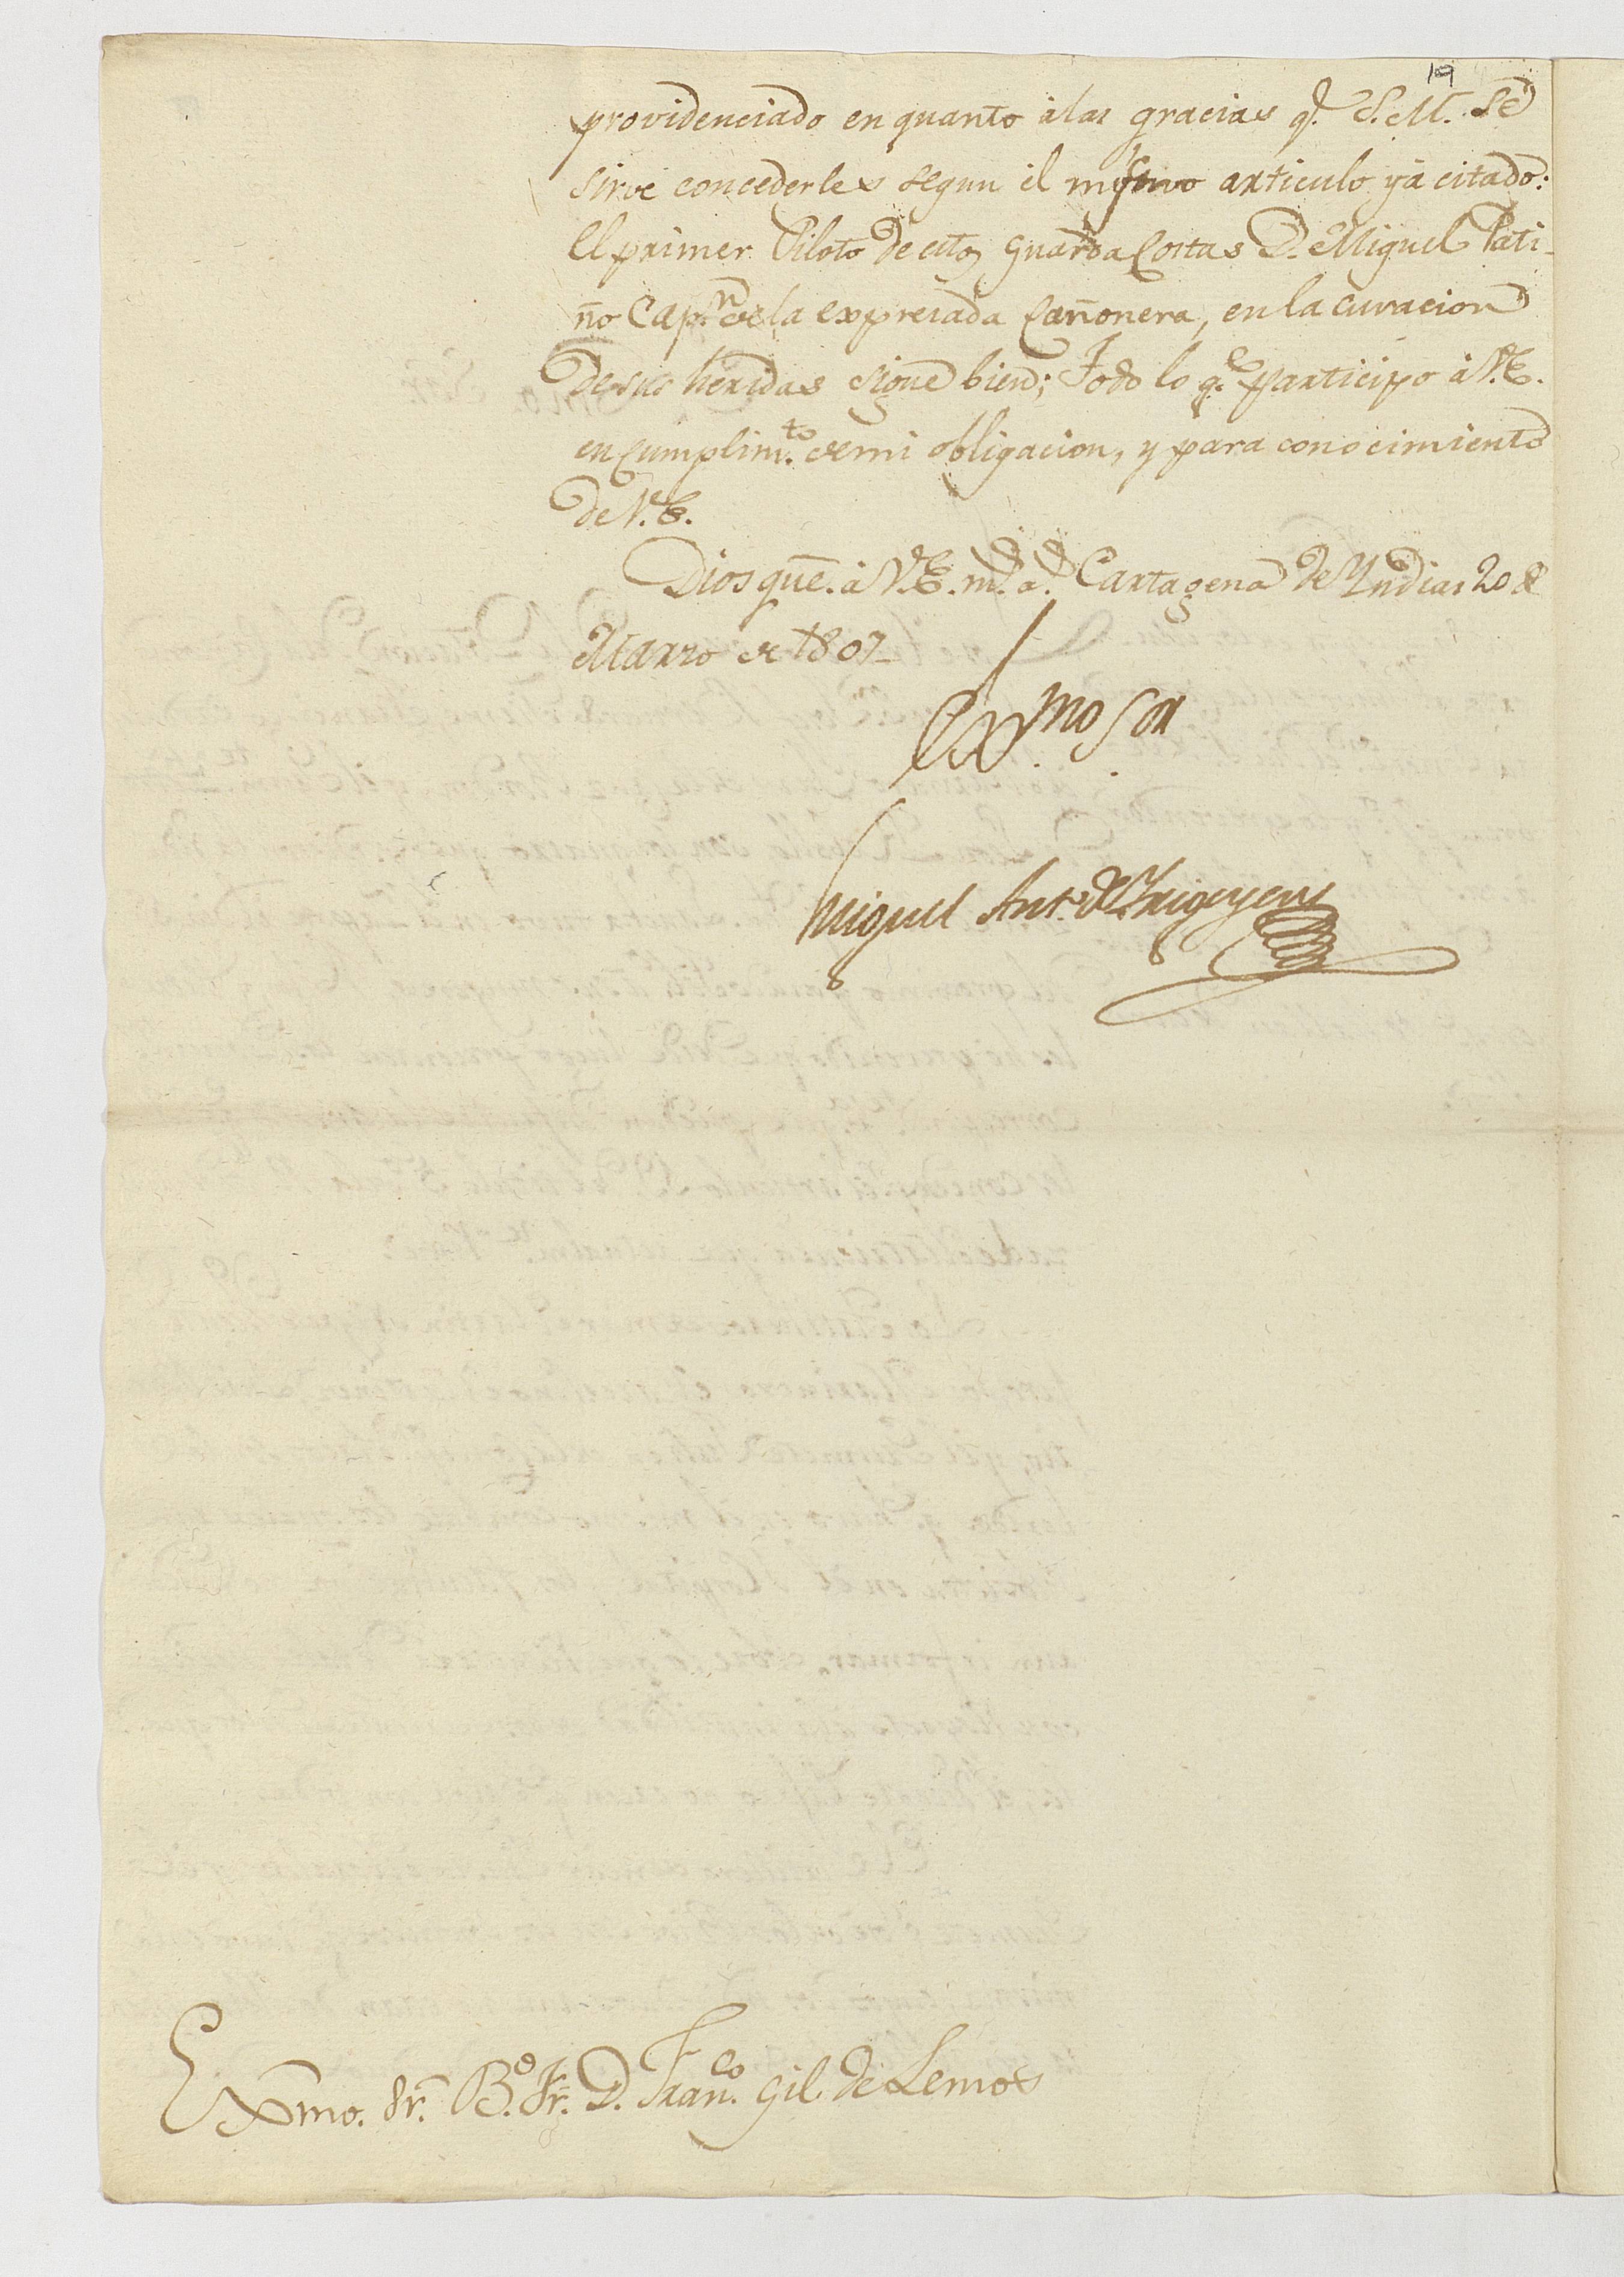 19
providenciado en quanto à las gracias q.e S.M. se
sirve concederles segun el mismo articulo ya citado:
El primer Piloto de estos Guarda Costas D.n Miguel Pati-
ño Cap.n de la expresada Cañonera, en la curacion
de sus heridas sigue bien; Todo lo q.e participo à V.E.
en cumplim.to de mi obligacion, y para conocimiento
de V.E.
Dios gue. à V.E. m.s a.s Cartagena de Yndias 20 de
Marzo de 1807_
Exmo Sor
Miguel Ant.o de Yrigoyen
Exmo. Sr. B.o Fr. D. Fran.co Gil de Lemos